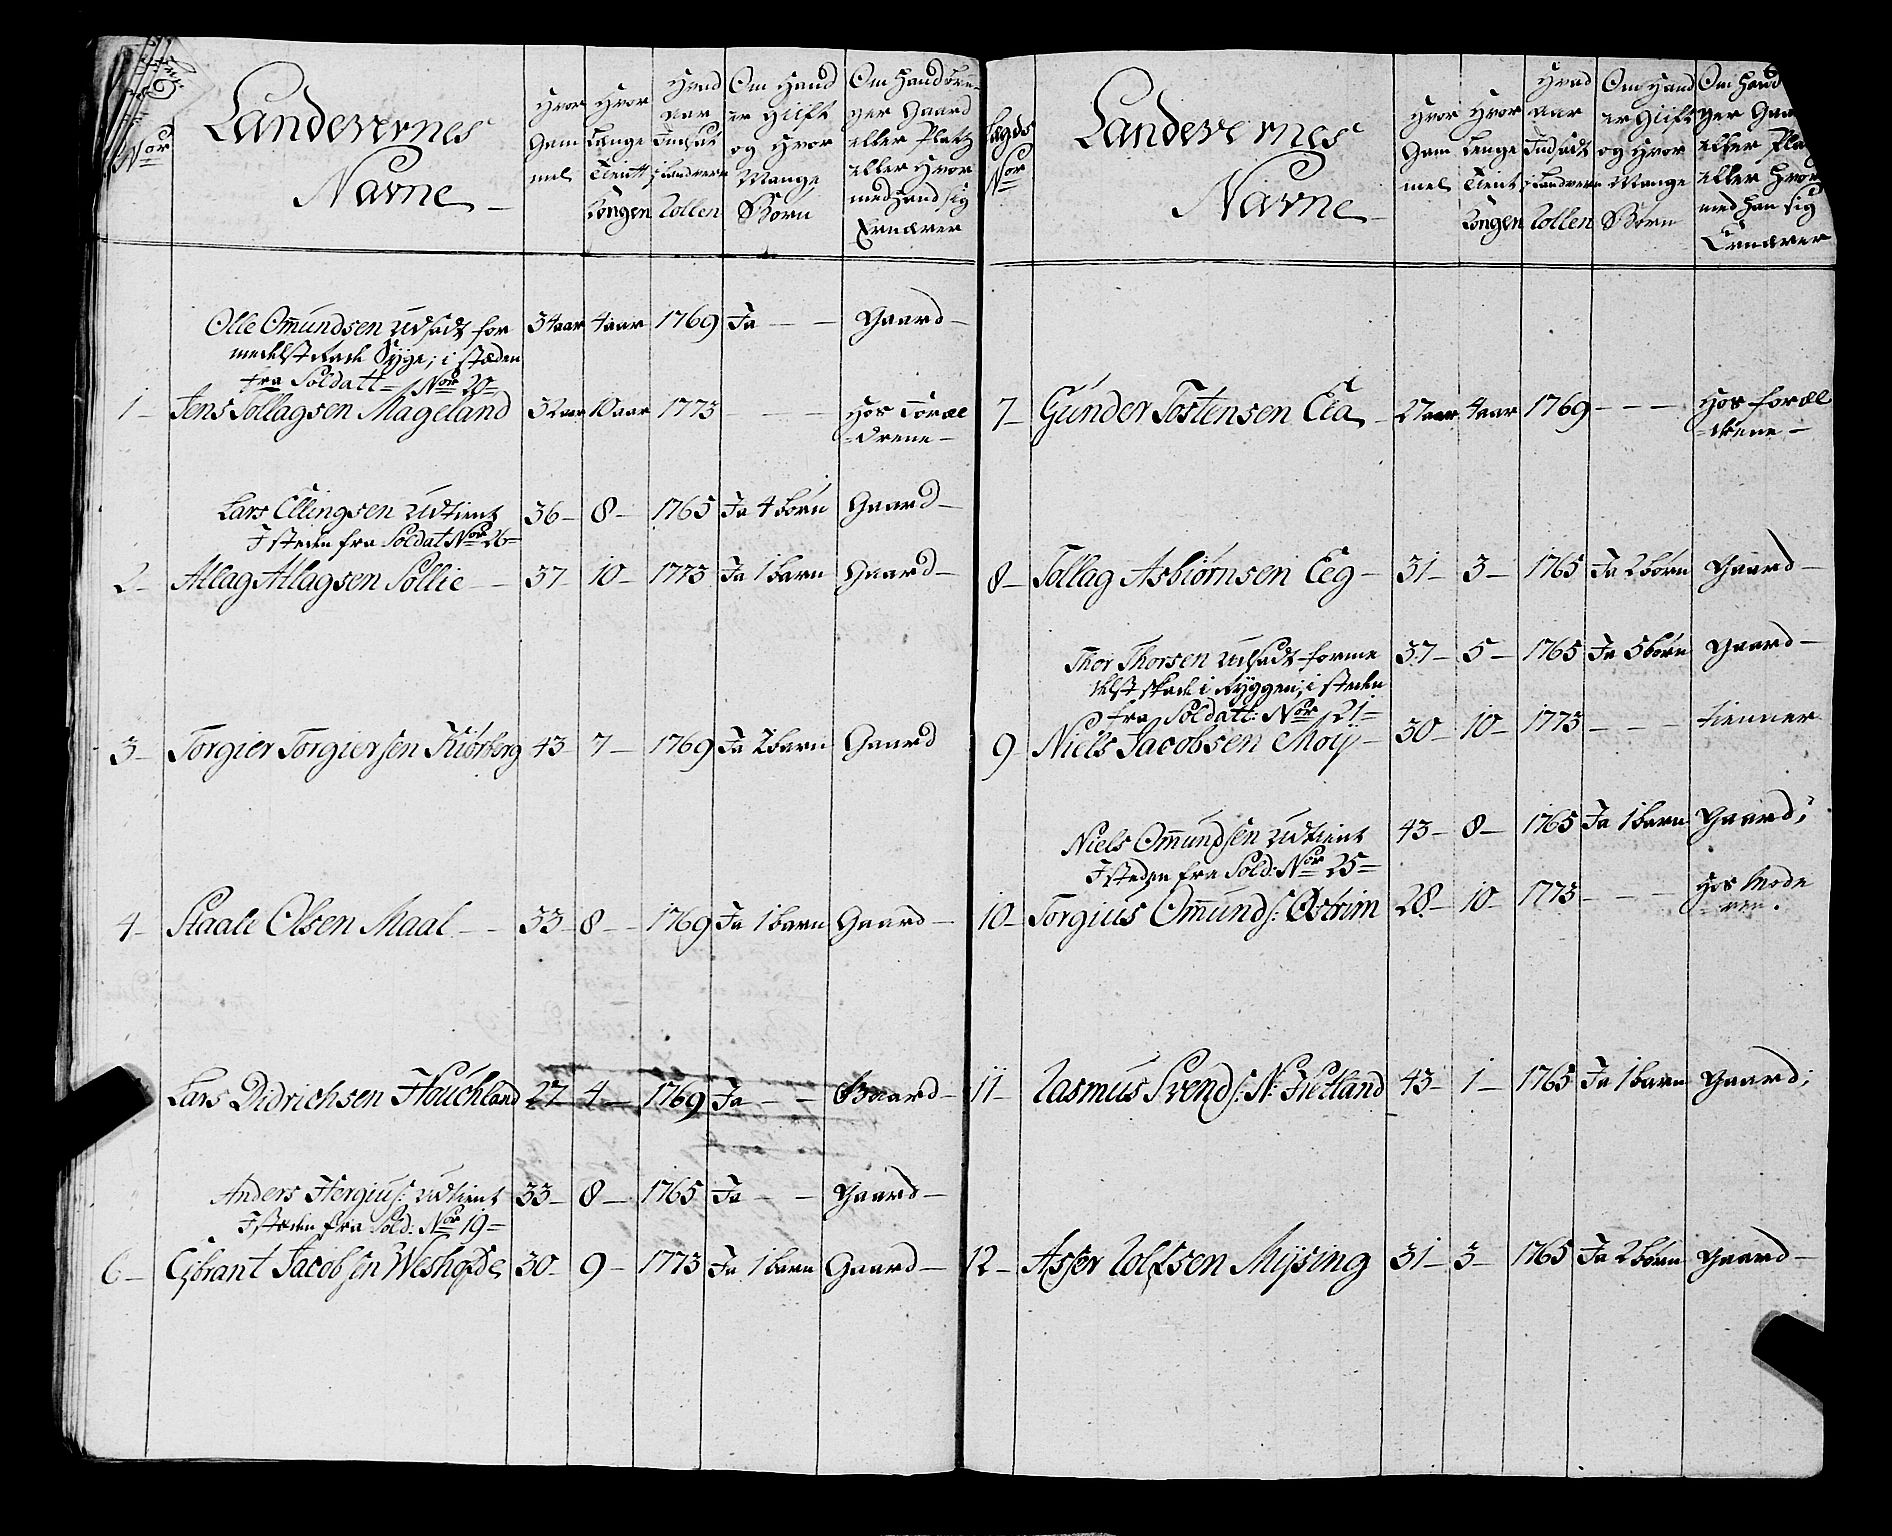 No͞r
Landevernes
Navne
Hvor
Gam
mel
Hvor
Længe
Tient
Kongen
Hvad
aar
Indsat
i Landvern
Rollen
Om Hand
er Gift
og Hvor
Mange
Børn
Om Hand
ger Gaard
eller Platz
eller Hvor
med Hand sig
Ernærer
Olle Om̄undsen udsadt for
medelst Sÿge; i stæden
fra Soldatt No͞r 20
34 aar 4 aar 1769 Ja — — Gaard —
1 — Jens Tollagsen Mageland 32 aar 10 aar 1773 — — — Hos Foræl
drene —
Lars Ellingsen udtient
I steden fra Soldat No͞r 26
36 — 8 — 1765 Ja 4 børn Gaard —
2 — Atlag Atlagsen Sollie — 37 — 10 — 1773 Ja 1 barn Gaard —
3 — Torgier Torgiersen Kiørberg 43 — 7 — 1769 Ja 2 barn Gaard
4 — Staale Olsen Maal — — 33 — 8 — 1769 Ja 1 barn Gaard —
Lars Didrichsen Houchland 27 4 — 1769 Ja — — Gaard —
Anders Hergius: udtient
I steden fra Sold: No͞r 19
33 — 8 — 1765 Ja — — Gaard —
6 — Gibrant Jacobsen Weshofde 30 — 9 — 1773 Ja 1 barn Gaard —
Lægds
No͞r
Landevernes
Navne
Hvor
Gam
mel
Hvor
Lenge
Tient
Kongen
Hvad
aar
Indsadt
i Landvern
Rollen
Om Hand
er Gift
og Hvor
Mange
Børn
Om Hand
ger
eller
eller Hvor
med Han sig
Ernærer
7 — Gunder Tostensen Eia — 27 aar 4 aar 1769 — — — Hos Foræl
drene —
8 — Tollag Asbiørnsen Eeg — 31 — 3 — 1765 Ja 2 børn Gaard —
Thor Thorsen udsadt forme
delst skade i Rÿggen; i steden
fra Soldatt: No͞r 21
37 — 5 — 1765 Ja 5 børn Gaard —
9 — Niels Jacobsen Moÿ — 30 — 10 — 1773 — — — tienner
Niels Om̄undsen udtient
I steden fra Sold: No͞r 25
43 — 8 — 1765 Ja 1 barn Gaard;
10 — Torgius Om̄unds: Østrim 28 — 10 — 1773 — — — Hos Mode
ren.
11 — Rasmus Svends: N: Hetland 43 — 1 — 1765 Ja 1 barn Gaard;
12 — Asser Rolfsen Mÿsing 31 — 3 — 1765 Ja 2 børn Gaard —